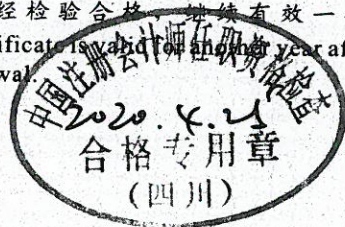 经检验合格，继续有效一
ificate is valid for another year af
wal.
中国注册会计师任职资格检查
2020.4.25
合格专用章
(四川)